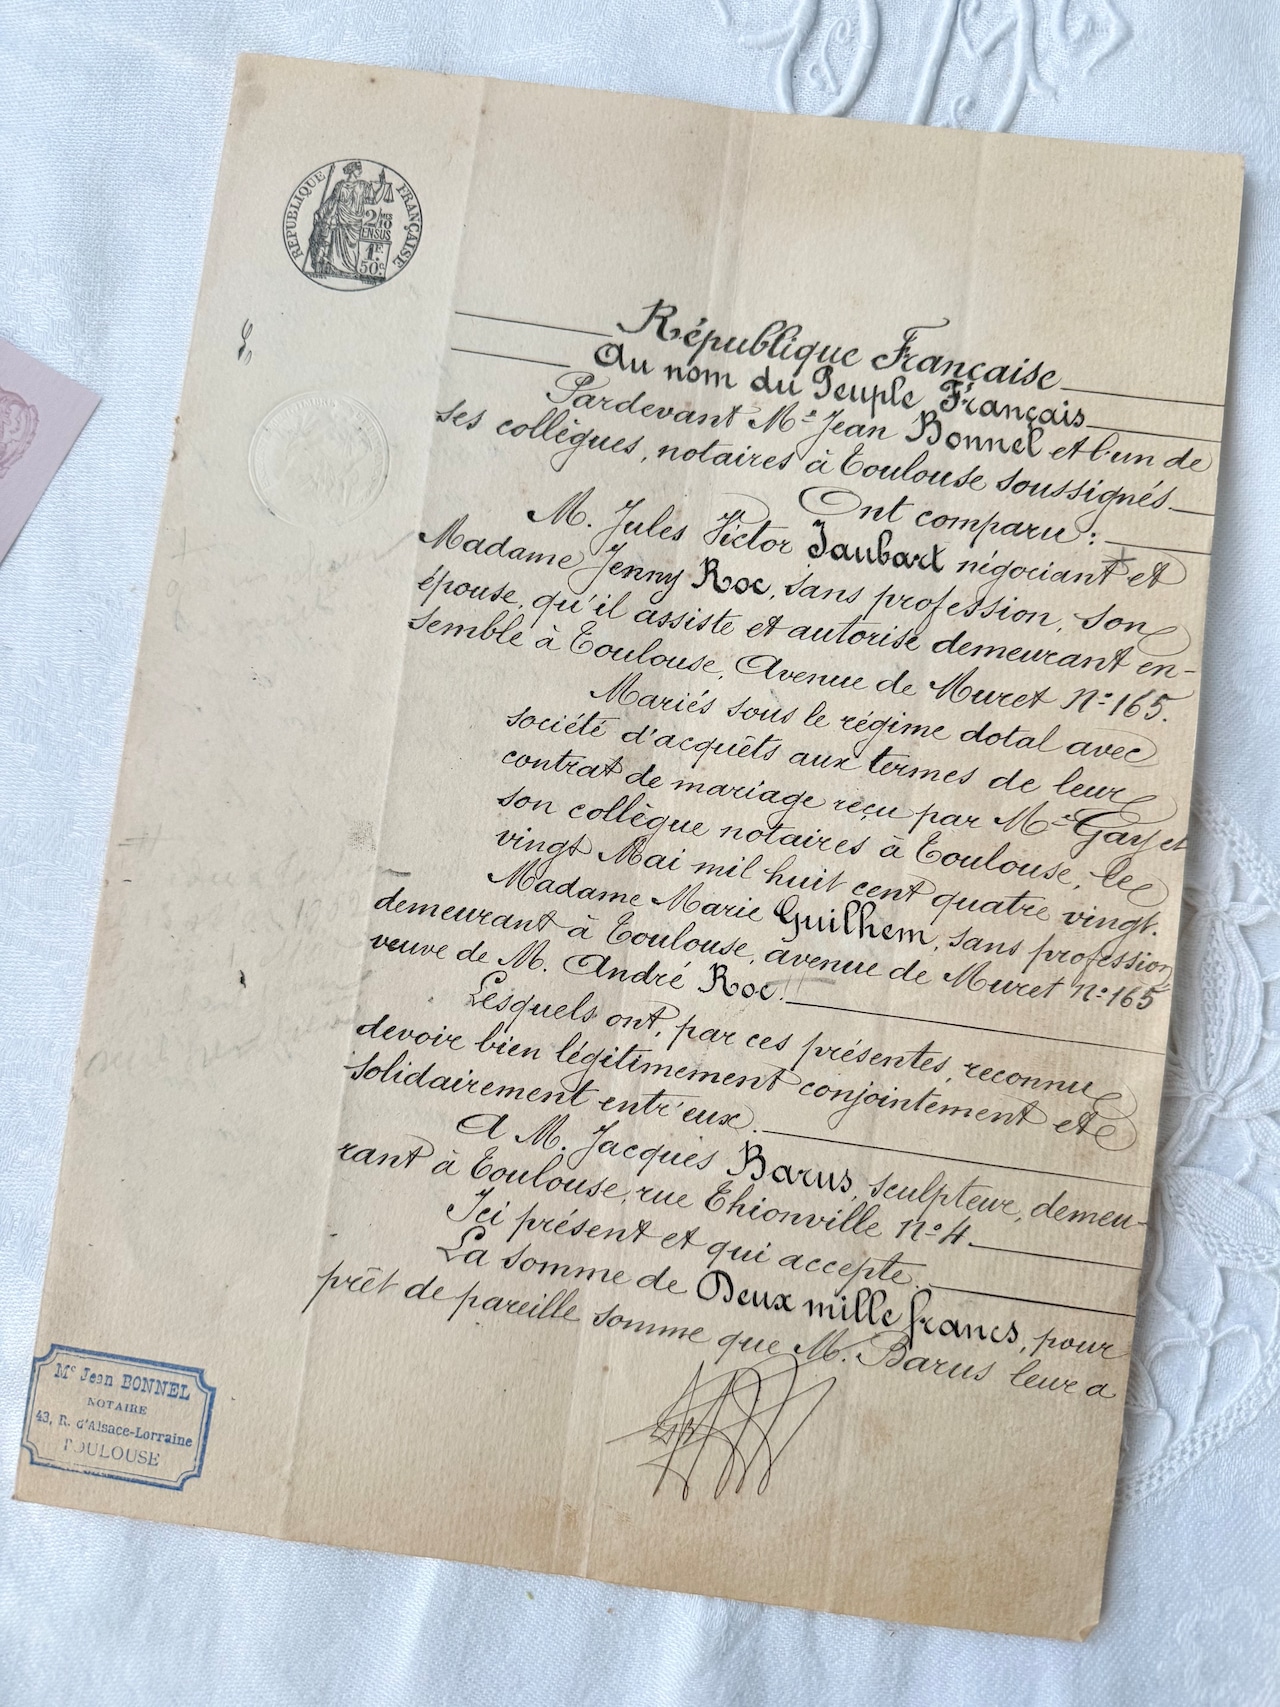 RÉPUBLIQUE FRANÇAISE
2/10
EN SUS
1F.
50c.
République Française
Au nom du Peuple Français
Pardevant Me Jean Bonnel et l'un de
ses collègues, notaires à Toulouse soussignés
Ont comparu :
M. Jules Victor Jaubart négociant et
Madame Jenny Roc, sans profession, son
épouse, qu'il assiste et autorise demeurant en-
semble à Toulouse, Avenue de Muret No 165.
Mariés sous le régime dotal avec
société d'acquêts aux termes de leur
contrat de mariage reçu par Me Gay et
son collègue notaires à Toulouse, le
vingt Mai mil huit cent quatre vingt.
Madame Marie Guilhem, sans profession
demeurant à Toulouse, avenue de Muret No 165
veuve de M. André Roc.
Lesquels ont, par ces présentes, reconnu
devoir bien légitimement conjointement et
solidairement entr'eux.
A M. Jacques Barus, sculpteur, demeu-
rant à Toulouse, rue Thionville No 4.
Ici présent et qui accepte.
La somme de Deux mille francs, pour
prêt de pareille somme que M. Barus leur a
Me Jean BONNEL
NOTAIRE
43, R. d'Alsace-Lorraine
TOULOUSE